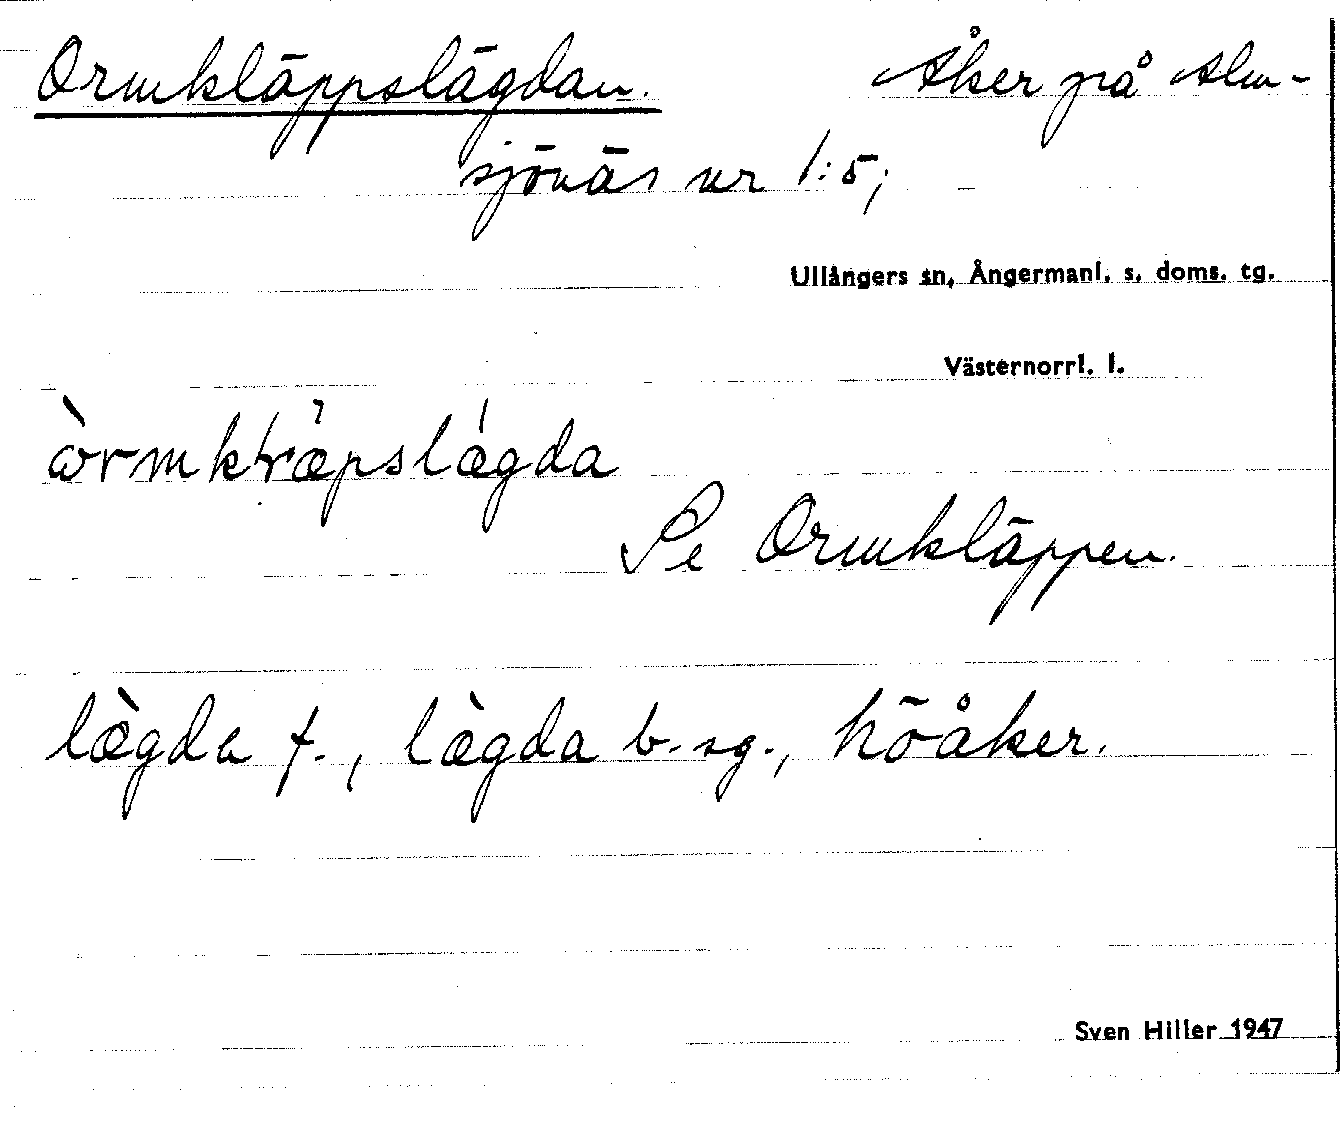 Ormkläppslägdan. Åker på Alm-
sjönäs nr 1:5;
Ullångers sn, Ångermanl. s. doms. tg.
Västernorrl. l.
Se Ormkläppen.
lægda f., lægda b. sg., höåker.
Sven Hiller 1947